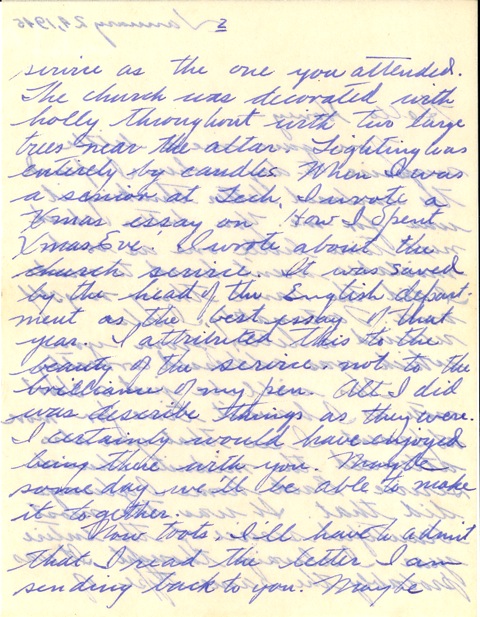 2
service as the one you attended.
The church was decorated with
holly throughout with two large
trees near the altar. Lighting was
entirely by candles. When I was
a senior at Tech, I wrote a
Xmas essay on "How I Spent
Xmas Eve". I wrote about the
church service. It was saved
by the head of the English depart-
ment as the best essay of that
year. I attributed this to the
beauty of the service, not to the
brilliance of my pen. All I did
was describe things as they were.
I certainly would have enjoyed
being there with you. Maybe
some day we'll be able to make
it together.
Now toots, I'll have to admit
that I read the letter I am
sending back to you. Maybe